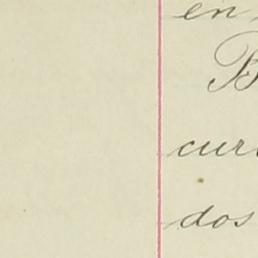 en
B
cur
dos